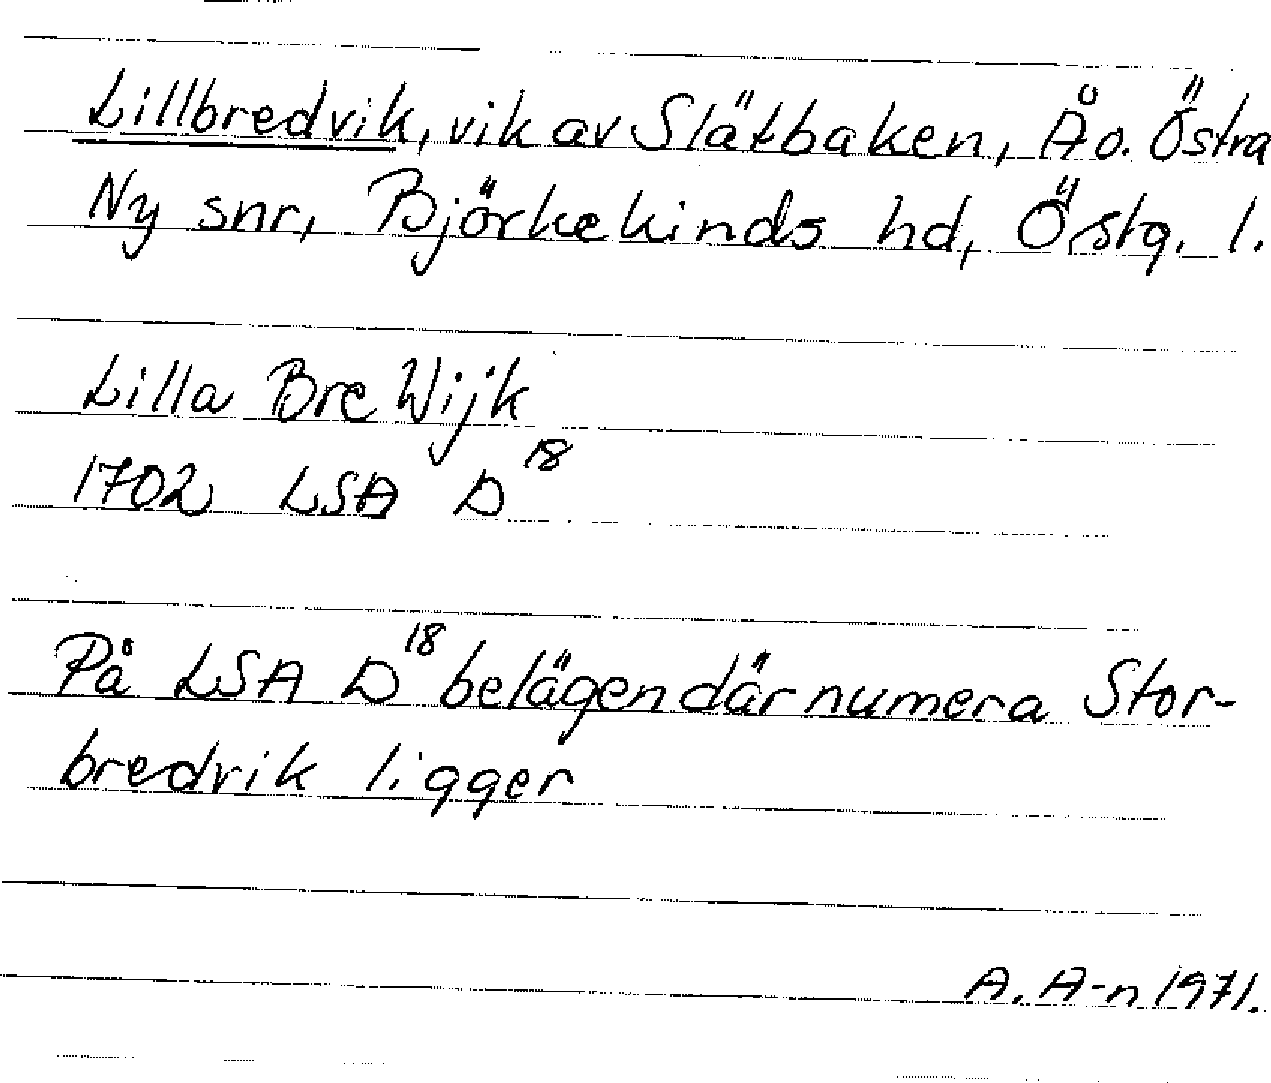 Lillbredvik, vik av Slätbaken, Å o. Östra
Ny snr, Björkekinds hd, Östg. l.
Lilla Bre Wijk
1702 LSA D 18
På LSA D 18 belägen där numera Stor-
bredvik ligger
A. A-n 1971.